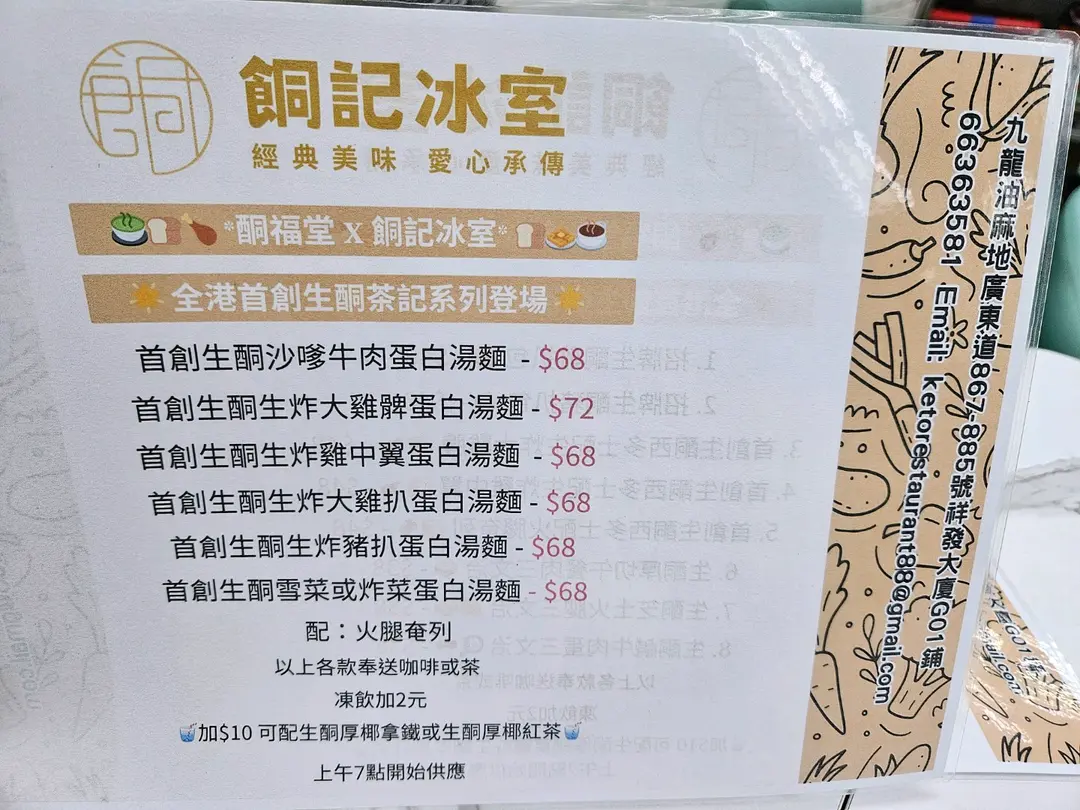 餇記冰室
經典美味 愛心承傳
*酮福堂 X 餇記冰室*
全港首創生酮茶記系列登場
首創生酮沙嗲牛肉蛋白湯麵 - $68
首創生酮生炸大雞髀蛋白湯麵 - $72
首創生酮生炸雞中翼蛋白湯麵 - $68
首創生酮生炸大雞扒蛋白湯麵 - $68
首創生酮生炸豬扒蛋白湯麵 - $68
首創生酮雪菜或炸菜蛋白湯麵 - $68
配：火腿奄列
以上各款奉送咖啡或茶
凍飲加2元
加$10 可配生酮厚椰拿鐵或生酮厚椰紅茶
上午7點開始供應
九龍油麻地廣東道867-885號祥發大廈G01鋪
66363581 Email: ketorestaurant88@gmail.com